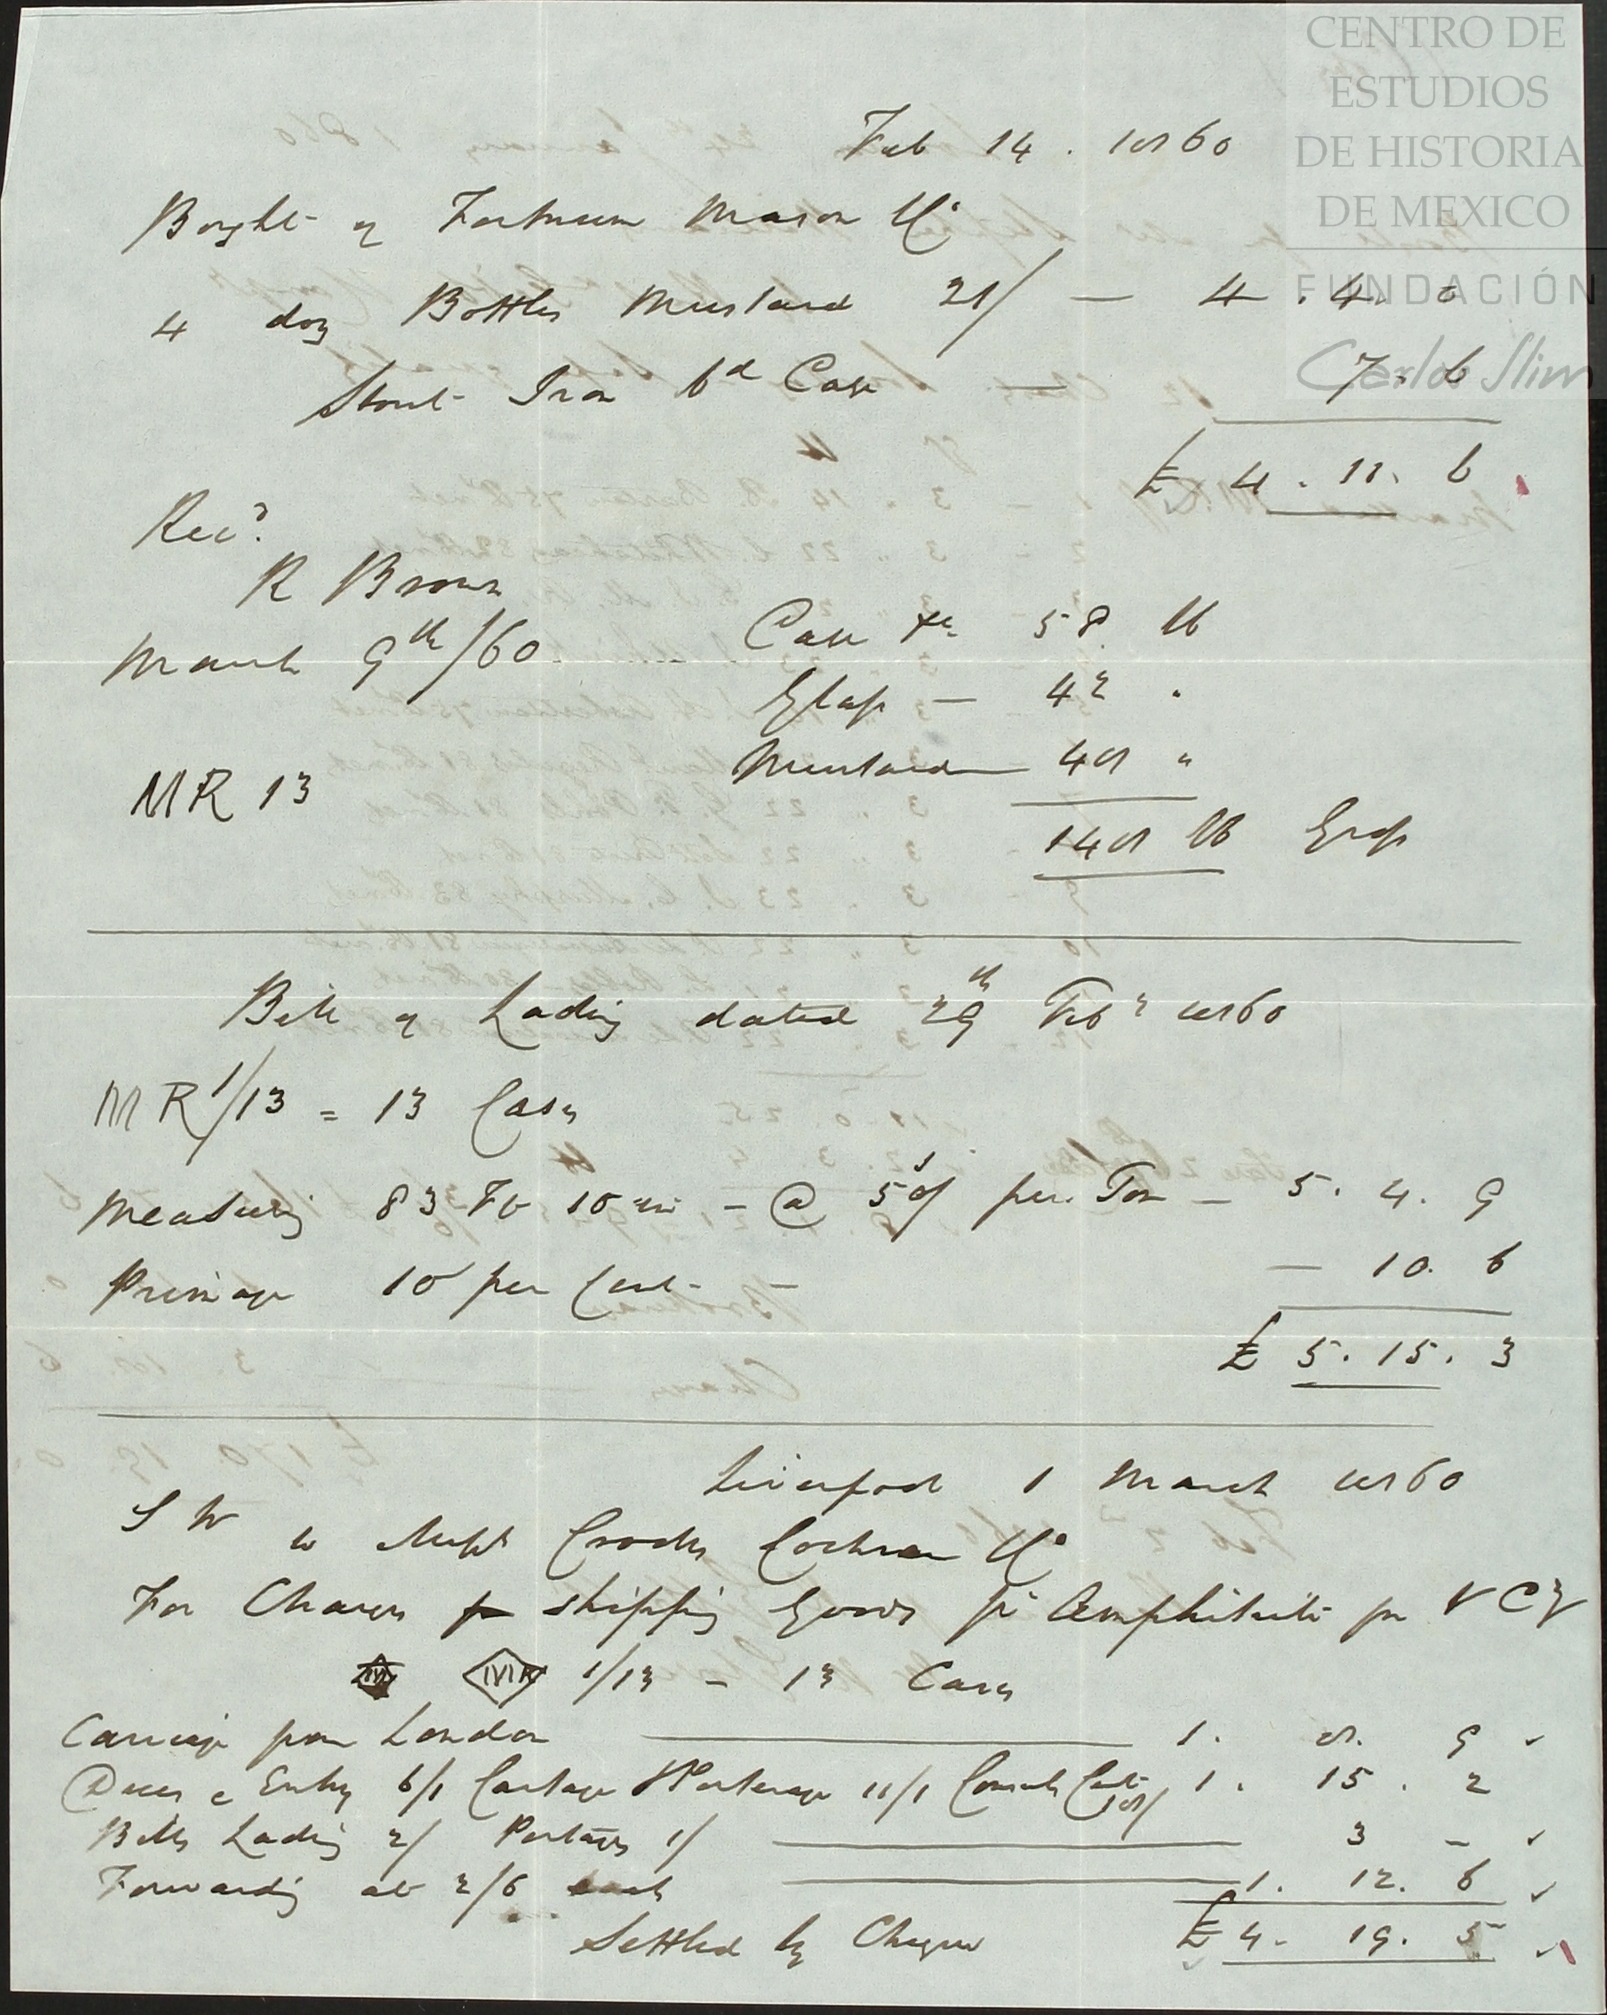 CENTRO DE
ESTUDIOS
DE HISTORIA
DE MEXICO
FUNDACIÓN
Carlos Slim
Feb 14. 1860
Bought of Fortnum Mason & Co
4 doz Bottles Mustard 21/ — 4. 4. 0
Stout Iron bd Case — 7. 6
£ 4. 11. 6
Recd.
R Brown
March 9th/60
Case &c 58 lb
Glass — 42 "
Mustard — 48 "
148 lb Gross
MR 13
Bill of Lading dated 29th Feby 1860
MR 1/13 = 13 Cases
Measuring 83 Ft 10 in — @ 50/ per Ton — 5. 4. 9
Primage 10 per Cent — — 10. 6
£ 5. 15. 3
Liverpool 1 March 1860
S W to Messrs Crooks Cochran & Co
For Charges shipping Goods pr Amphitrite for V CZ
MR 1/13 — 13 Cases
Carriage from London — 1. 8. 9
Dues & Entry 6/1 Cartage & Porterage 11/1 Consuls Cert 18/ 1. 15. 2
Bills Lading 2/ Postages 1/ — 3 —
Forwarding at 2/6 each — 1. 12. 6
Settled by Cheque £ 4. 19. 5